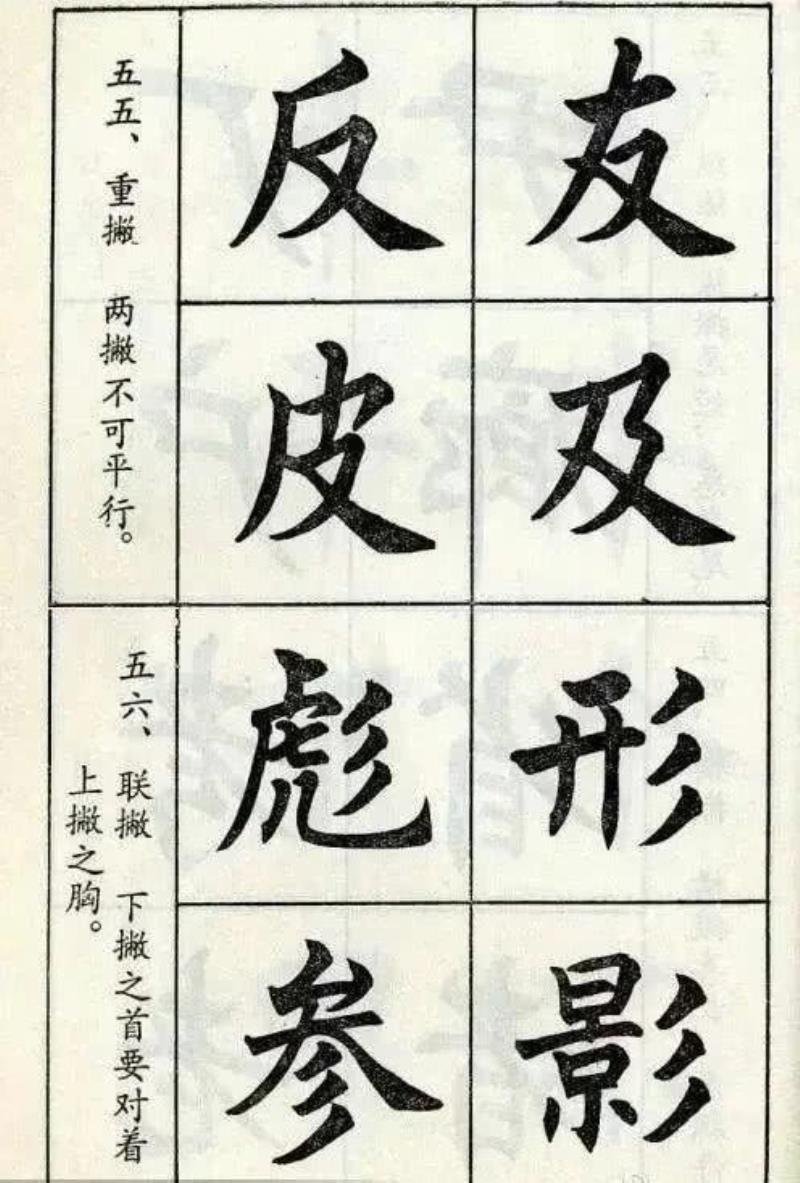 友
及
反
皮
五五、重撇 两撇不可平行。
形
影
彪
参
五六、联撇 下撇之首要对着
上撇之胸。